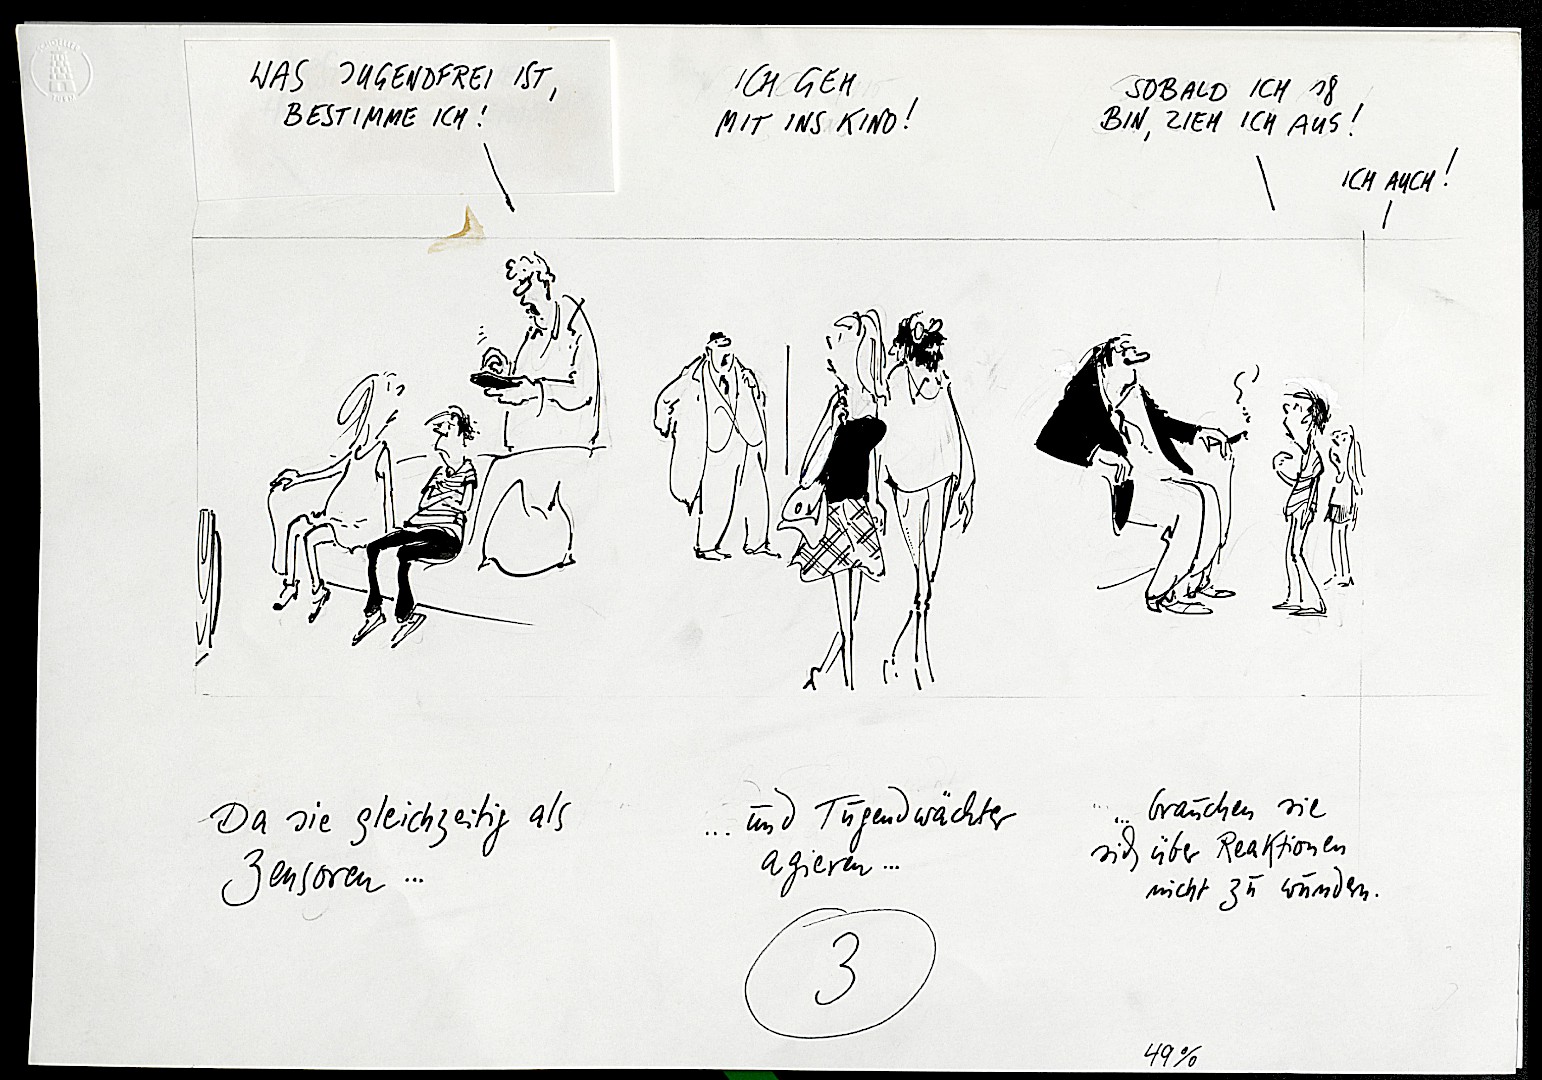 WAS JUGENDFREI IST,
BESTIMME ICH!
ICH GEH
MIT INS KINO!
SOBALD ICH 18
BIN, ZIEH ICH AUS!
ICH AUCH!
Da sie gleichzeitig als
Zensoren ...
... und Tugendwächter
agieren ...
... brauchen sie
sich über Reaktionen
nicht zu wundern.
3
49%